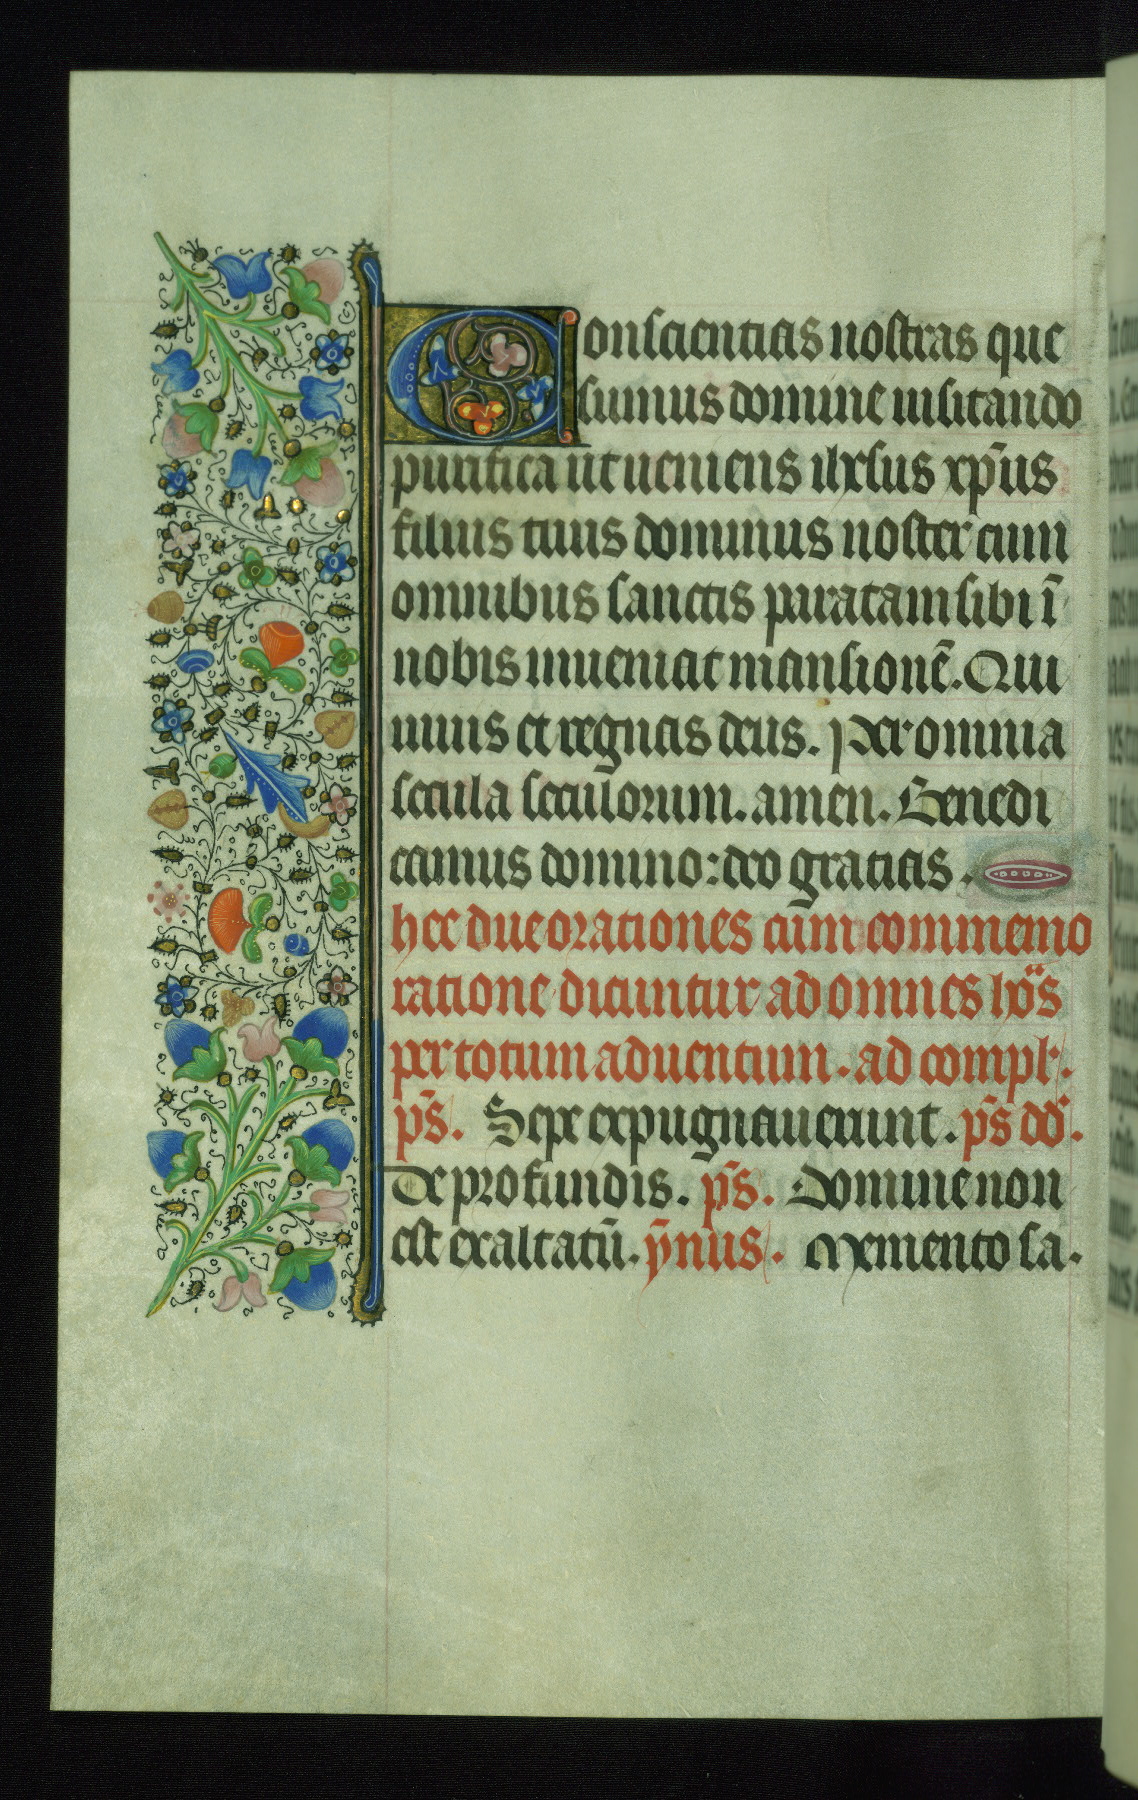 Conscientias nostras que
sumus domine uisitando
purifica ut ueniens ihesus xp̄us
filius tuus dominus noster cum
omnibus sanctis paratam sibi ī
nobis inueniat mansionē. Qui
uiuis et regnas deus. Per omnia
secula seculorum. amen. Benedi
camus domino: deo gratias.
hee due orationes cum commemo
ratione dicuntur ad omnes hōs
per totum aduentum. ad compl'.
ps̄. Sepe expugnauerunt. ps̄ dd̄.
De profundis. ps̄. Domine non
est exaltatū. ȳnus. Memento sa.